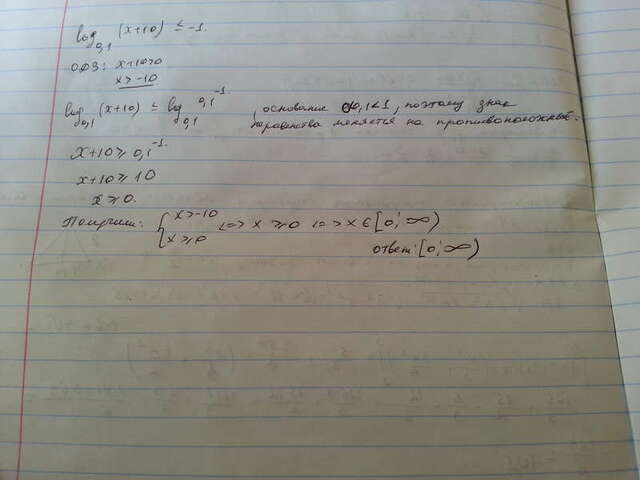 log₀,₁ (x+10) ≤ -1.
ОДЗ: x+10>0
x>-10
log₀,₁ (x+10) ≤ log₀,₁ 0,1⁻¹, основание 0,1<1, поэтому знак
неравенства меняется на противоположный.
x+10 ≥ 0,1⁻¹.
x+10 ≥ 10
x ≥ 0.
Получим: { x>-10
x ≥ 0 <=> x ≥ 0 <=> x ∈ [0; ∞)
ответ: [0; ∞)